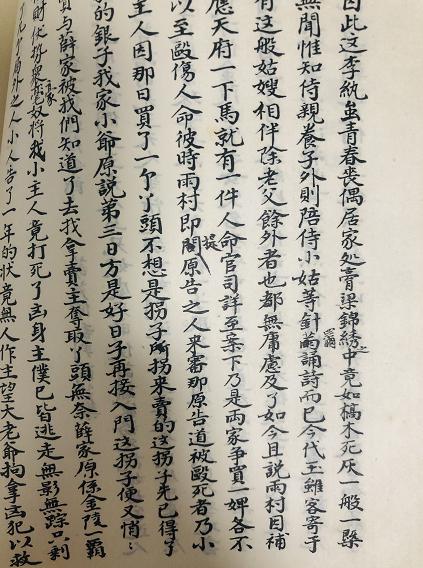 因此这李紈雖青春喪偶居家処膏粱錦綉之中竟如槁木死灰一般一槩
無聞惟知侍親養子外則陪侍小姑等針黹誦詩而已今代玉雖客寄于
有這般姑嫂相伴除老父餘外者也都無庸慮及了如今且説雨村因補
應天府一下馬就有一件人命官司詳至案下乃是両家争買一婢各不
以至毆傷人命彼時雨村即提原告之人來審那原告道被毆死者乃小
主人因那日買了一个丫頭不想是拐子所拐来賣的这拐子先已得了
的銀子我家小爺原説第三日方是好日子再接入門这拐子便又悄:
賣与薛家被我們知道了去找拿賣主奪取丫頭無奈薛家原係金陵一霸
財仗衆豪奴将我小主人竟打死了凶身主僕已皆逃走無影無踪只剩
了几个局外之人小人告了一年的状竟無人作主望大老爺拘拿凶犯以救